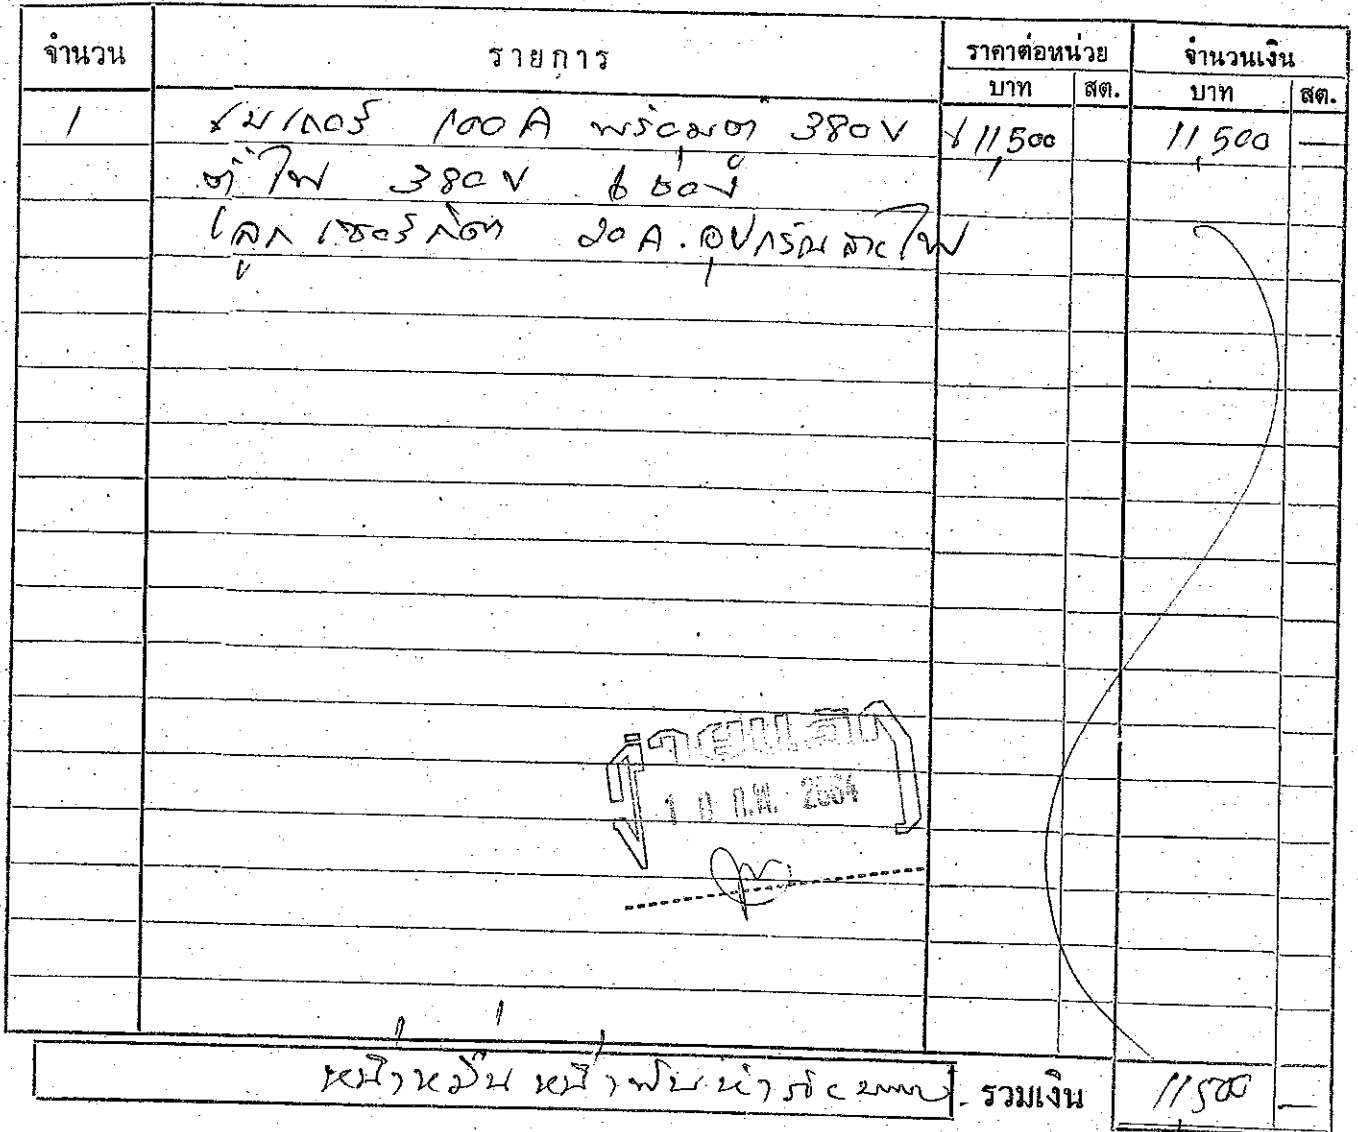 จำนวน รายการ ราคาต่อหน่วย จำนวนเงิน
บาท สต. บาท สต.
1 เบเกอร์ 100 A พร้อมตู้ 380 V 11,500 11,500 —
ตู้ไฟ 380 V 6 ช่อง
ลูกเซอร์กิต 20 A. อุปกรณ์สายไฟ
จ่ายแล้ว
10 ก.พ. 2564
หนึ่งหมื่นหนึ่งพันห้าร้อยบาท รวมเงิน 11,500 —